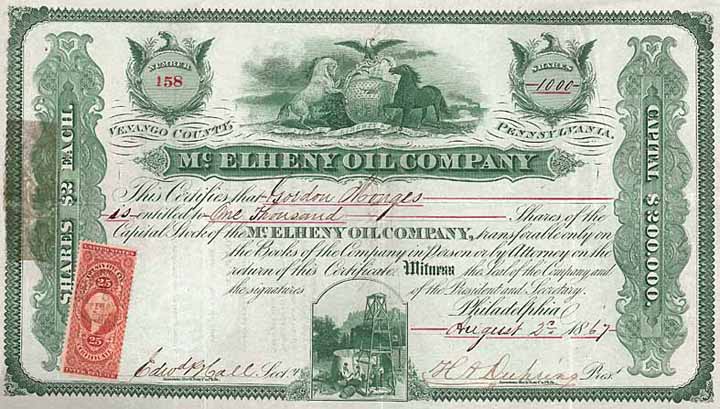 NUMBER
158
SHARES
1000
VENANGO COUNTY,
PENNSYLVANIA.
Mc ELHENY OIL COMPANY
SHARES $2 EACH
CAPITAL $200,000
This Certifies that Gordon Monges
is entitled to One Thousand Shares of the
Capital Stock of the Mc ELHENY OIL COMPANY, transferable only on
the Books of the Company in person or by Attorney on the
return of this Certificate. Witness the Seal of the Company and
the signatures of the President and Secretary.
Philadelphia
August 2d 1867
UNITED STATES
25
25
CERTIFICATE
Edwd P Hall Secy
H A Duhring Prest